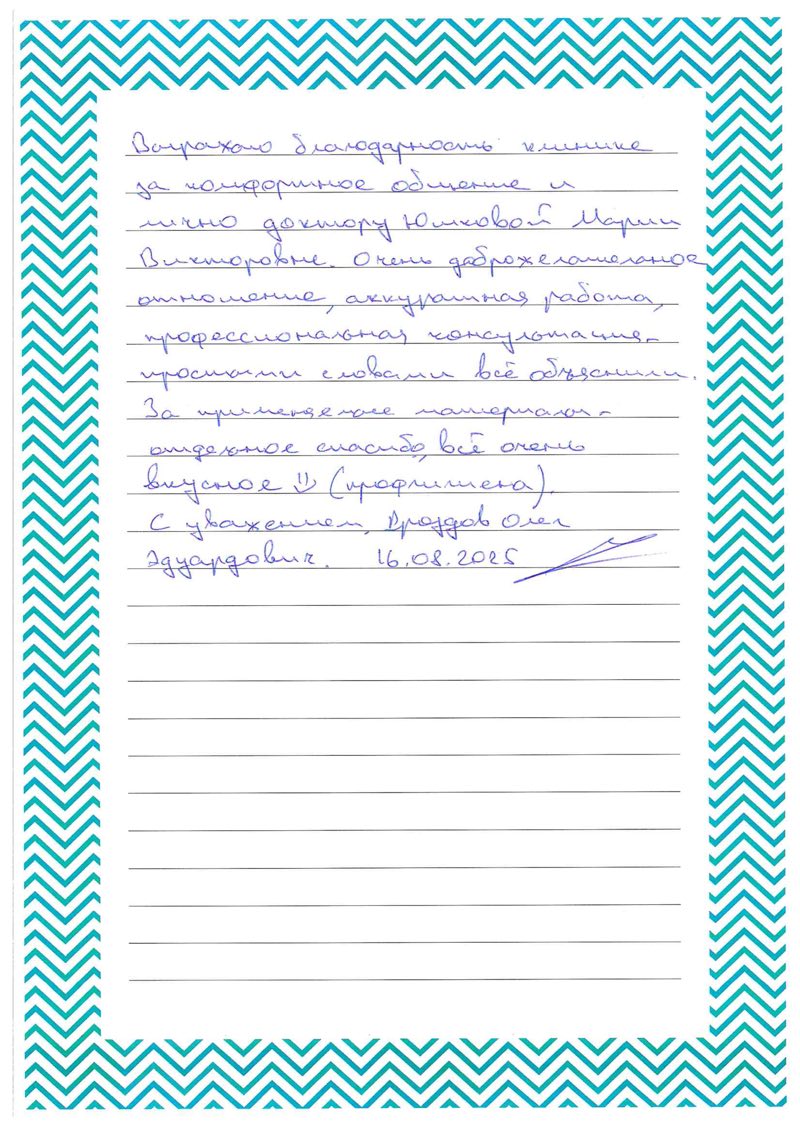 Выражаю благодарность клинике
за комфортное общение и
лично доктору Юшковой Марии
Викторовне. Очень доброжелательное
отношение, аккуратная работа,
профессиональная консультация -
простыми словами всё объяснили.
За применяемые материалы -
отдельное спасибо, всё очень
вкусное (профгигиена).
С уважением, Дроздов Олег
Эдуардович. 16.08.2025